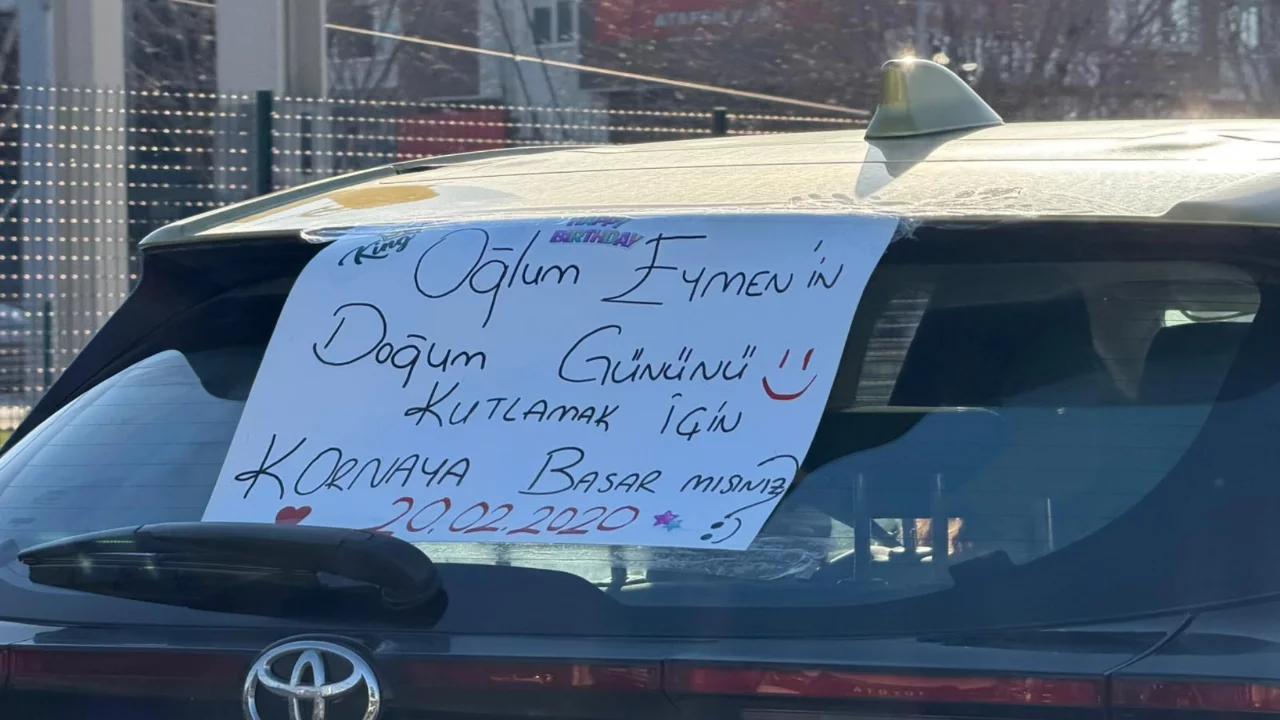 King
HAPPY
BIRTHDAY
Oğlum Eymen'in
Doğum Gününü
Kutlamak İçin
Kornaya Basar mısınız?
20.02.2020